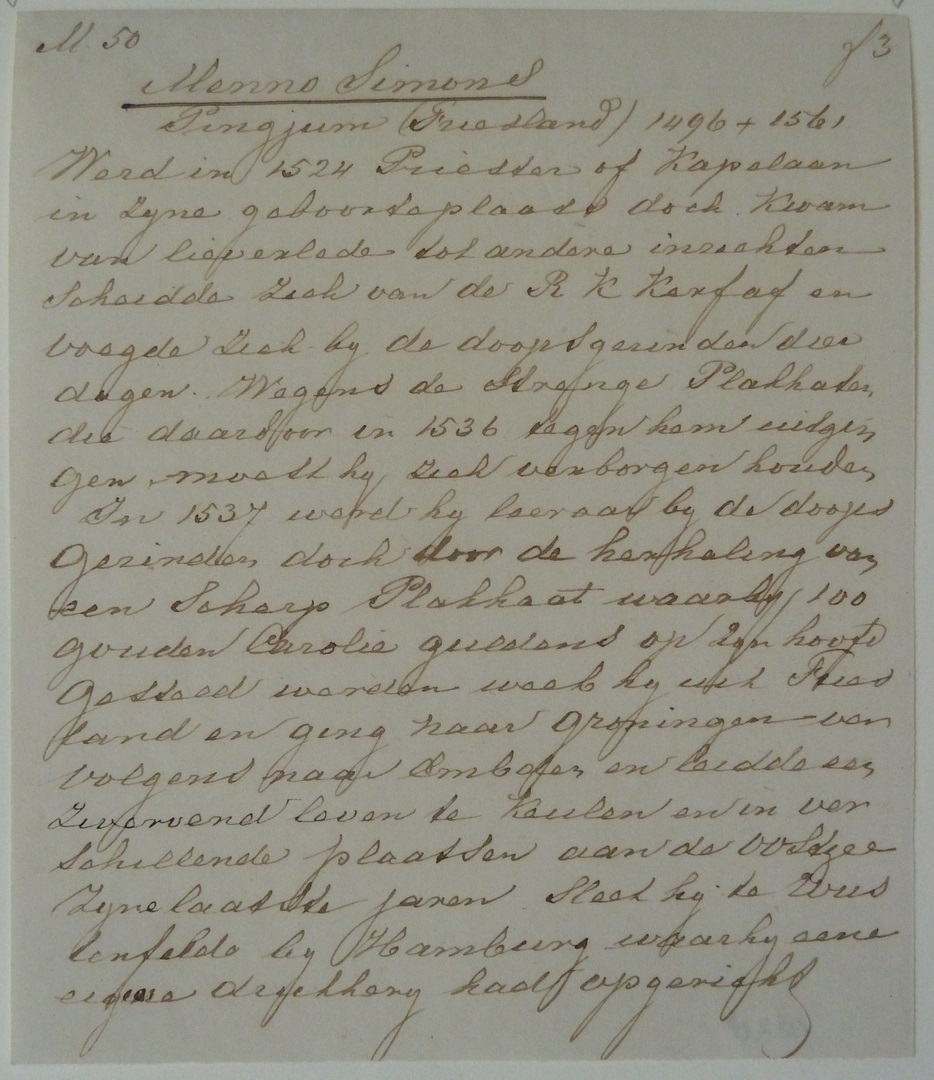 M. 50 f 3
Menno Simons
Pingjum (Friesland) 1496 + 1561
Werd in 1524 Priester of Kapelaan
in zyne geboorteplaats doch kwam
van lieverlede tot andere inzichten
Scheidde zich van de R K Kerf af en
voegde zich by de doopsgezinden dier
dagen. Wegens de Strenge Plakkaten
die daardoor in 1536 tegen hem uitgin
gen moest hy zich verborgen houden
In 1537 werd hy leeraar by de doops
Gezinden doch door de herhaling van
een Scherp Plakkaat waarby 100
gouden Carolie guldens op zyn hoofd
Gesteld werden week hy uit Fries
land en ging naar Groningen ver
volgens naar Embden en leidde een
Zwervend leven te Keulen en in ver
schillende plaatsen aan de Oostzee
Zyne laatste jaren Sleet hy te Wus
tenfelde by Hamburg waar hy eene
eigene drukkery had opgericht